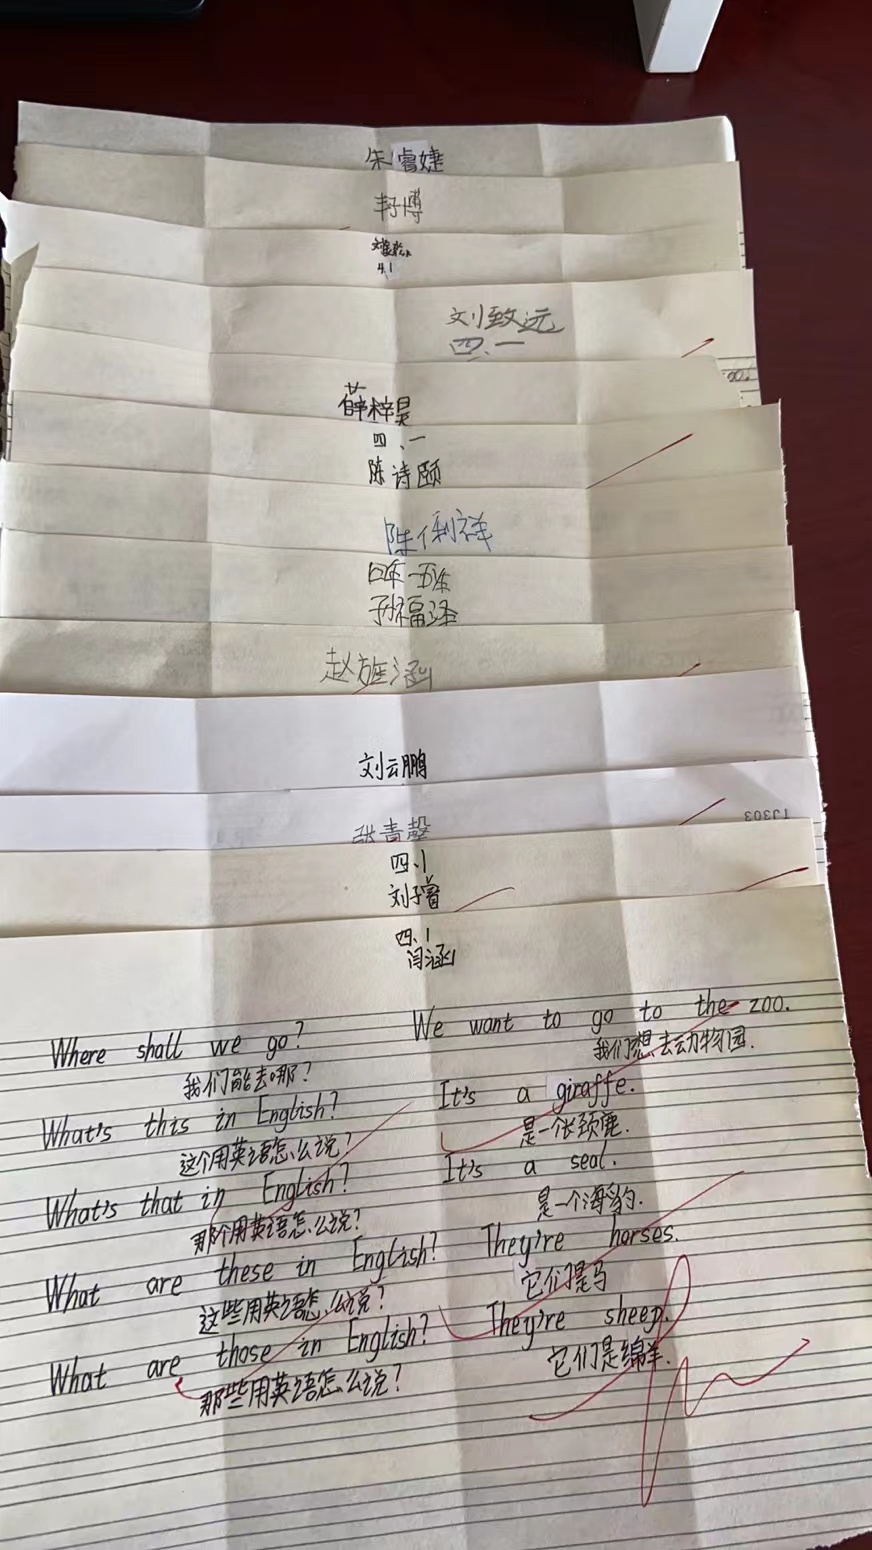 朱睿婕
封博
4.1
刘致远
四、一
薛梓昊
四、一
陈诗颐
陈利祥
孙福泽
赵旌涵
刘云鹏
13303
张青馨
四、1
刘子睿
四、1
闫涵
Where shall we go? We want to go to the zoo.
我们能去哪? 我们想去动物园.
What's this in English? It's a giraffe.
这个用英语怎么说? 是一个长颈鹿.
What's that in English? It's a seal.
那个用英语怎么说? 是一个海豹.
What are these in English? They're horses.
这些用英语怎么说? 它们是马
What are those in English? They're sheep.
那些用英语怎么说? 它们是绵羊.